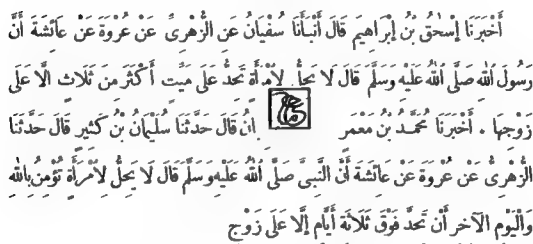 أَخْبَرَنَا إِسْحٰقُ بْنُ إِبْرَاهِيمَ قَالَ أَنْبَأَنَا سُفْيَانُ عَنِ الزُّهْرِىِّ عَنْ عُرْوَةَ عَنْ عَائِشَةَ أَنَّ
رَسُولَ اللّٰهِ صَلَّى اللّٰهُ عَلَيْهِ وَسَلَّمَ قَالَ لَا يَحِلُّ لِامْرَأَةٍ تَحِدُّ عَلَى مَيِّتٍ أَكْثَرَ مِنْ ثَلَاثٍ الَّا عَلَى
زَوْجِهَا . أَخْبَرَنَا مُحَمَّدُ بْنُ مَعْمَرٍ قَالَ حَدَّثَنَا سُلَيْمَانُ بْنُ كَثِيرٍ قَالَ حَدَّثَنَا
الزُّهْرِىُّ عَنْ عُرْوَةَ عَنْ عَائِشَةَ أَنَّ النَّبِىَّ صَلَّى اللّٰهُ عَلَيْهِ وَسَلَّمَ قَالَ لَا يَحِلُّ لِامْرَأَةٍ تُؤْمِنُ بِاللّٰهِ
وَالْيَوْمِ الْآخِرِ أَنْ تَحِدَّ فَوْقَ ثَلَاثَةِ أَيَّامٍ إِلَّا عَلَى زَوْجٍ